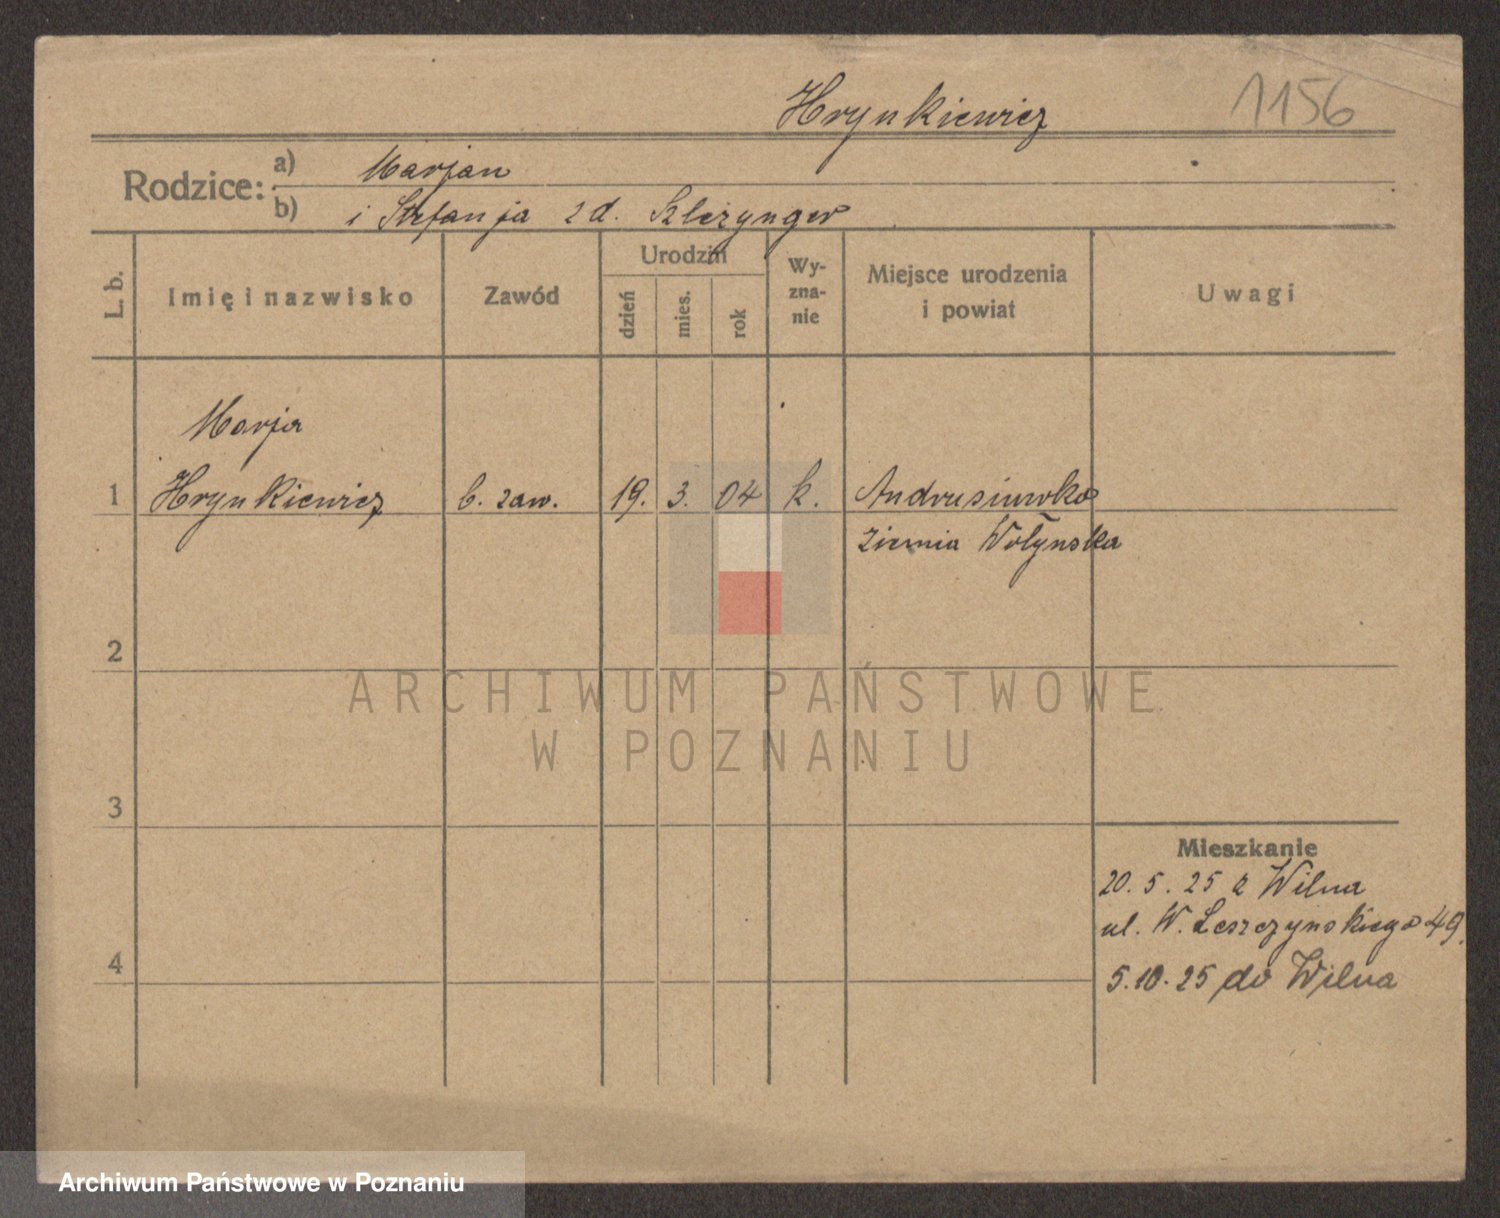 Hrynkiewicz 1156
Rodzice: a) Marjan
b) i Stefanja z d. Szlezynger
L. b. Imię i nazwisko Zawód Urodzin dzień mies. rok Wy-zna-nie Miejsce urodzenia i powiat Uwagi
Marja
1 Hrynkiewicz b. zaw. 19. 3. 04 k. Andrusiuwka
Ziemia Wołynska
2
ARCHIWUM PAŃSTWOWE
W POZNANIU
3
Mieszkanie
20. 5. 25 z Wilna
ul. W. Leszczynskiego 49.
4
5. 10. 25 do Wilna
Archiwum Państwowe w Poznaniu